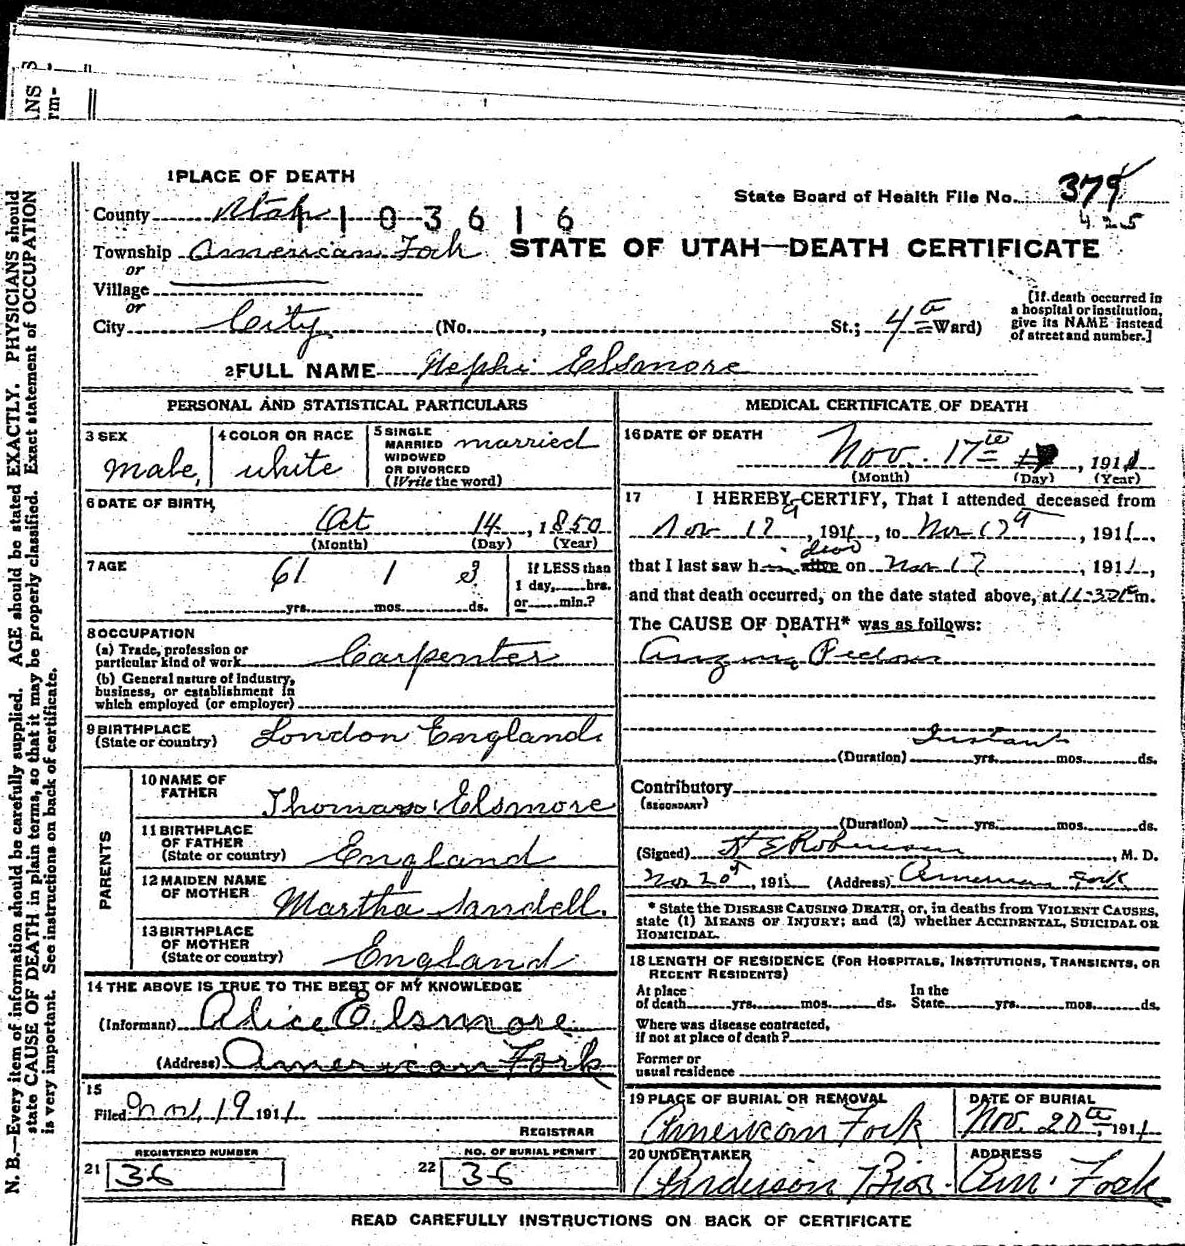 1 PLACE OF DEATH
State Board of Health File No. 379
425
County Utah
1103616
Township American Fork
STATE OF UTAH—DEATH CERTIFICATE
or
Village
or
City City (No. , St.; 4th Ward)
[If death occurred in
a hospital or institution,
give its NAME instead
of street and number.]
2 FULL NAME Nephi Elsmore
PERSONAL AND STATISTICAL PARTICULARS
3 SEX
Male,
4 COLOR OR RACE
white
5 SINGLE
MARRIED
WIDOWED
OR DIVORCED
(Write the word)
married
6 DATE OF BIRTH,
Oct 14, 1850
(Month) (Day) (Year)
7 AGE
61 yrs. 1 mos. 3 ds.
If LESS than
1 day, hrs.
or min.?
8 OCCUPATION
(a) Trade, profession or
particular kind of work Carpenter
(b) General nature of Industry,
business, or establishment in
which employed (or employer)
9 BIRTHPLACE
(State or country) London England.
PARENTS
10 NAME OF
FATHER
Thomas Elsmore
11 BIRTHPLACE
OF FATHER
(State or country) England
12 MAIDEN NAME
OF MOTHER
Martha Sandell.
13 BIRTHPLACE
OF MOTHER
(State or country) England
14 THE ABOVE IS TRUE TO THE BEST OF MY KNOWLEDGE
(Informant) Alice Elsmore
(Address) American Fork
15
Filed Nov 19 1911
REGISTRAR
REGISTERED NUMBER
21 36
NO. OF BURIAL PERMIT
22 36
MEDICAL CERTIFICATE OF DEATH
16 DATE OF DEATH
Nov. 17th, 1911
(Month) (Day) (Year)
17 I HEREBY CERTIFY, That I attended deceased from
Nov 17, 1911, to Nov 17, 1911,
dead
that I last saw him alive on Nov 17, 1911,
and that death occurred, on the date stated above, at m.
The CAUSE OF DEATH* was as follows:
Angina Pectoris
Instant
(Duration) yrs. mos. ds.
Contributory
(SECONDARY)
(Duration) yrs. mos. ds.
(Signed) Robinson, M. D.
Nov 20, 1911 (Address) American Fork
* State the DISEASE CAUSING DEATH, or, in deaths from VIOLENT CAUSES,
state (1) MEANS OF INJURY; and (2) whether ACCIDENTAL, SUICIDAL OR
HOMICIDAL.
18 LENGTH OF RESIDENCE (FOR HOSPITALS, INSTITUTIONS, TRANSIENTS, OR
RECENT RESIDENTS)
At place
of death yrs. mos. ds.
In the
State yrs. mos. ds.
Where was disease contracted,
if not at place of death?
Former or
usual residence
19 PLACE OF BURIAL OR REMOVAL
American Fork
DATE OF BURIAL
Nov. 20th, 1911
20 UNDERTAKER
Anderson Bros.
ADDRESS
Am. Fork
READ CAREFULLY INSTRUCTIONS ON BACK OF CERTIFICATE
N. B.—Every item of information should be carefully supplied. AGE should be stated EXACTLY. PHYSICIANS should
state CAUSE OF DEATH in plain terms, so that it may be properly classified. Exact statement of OCCUPATION
is very important. See instructions on back of certificate.